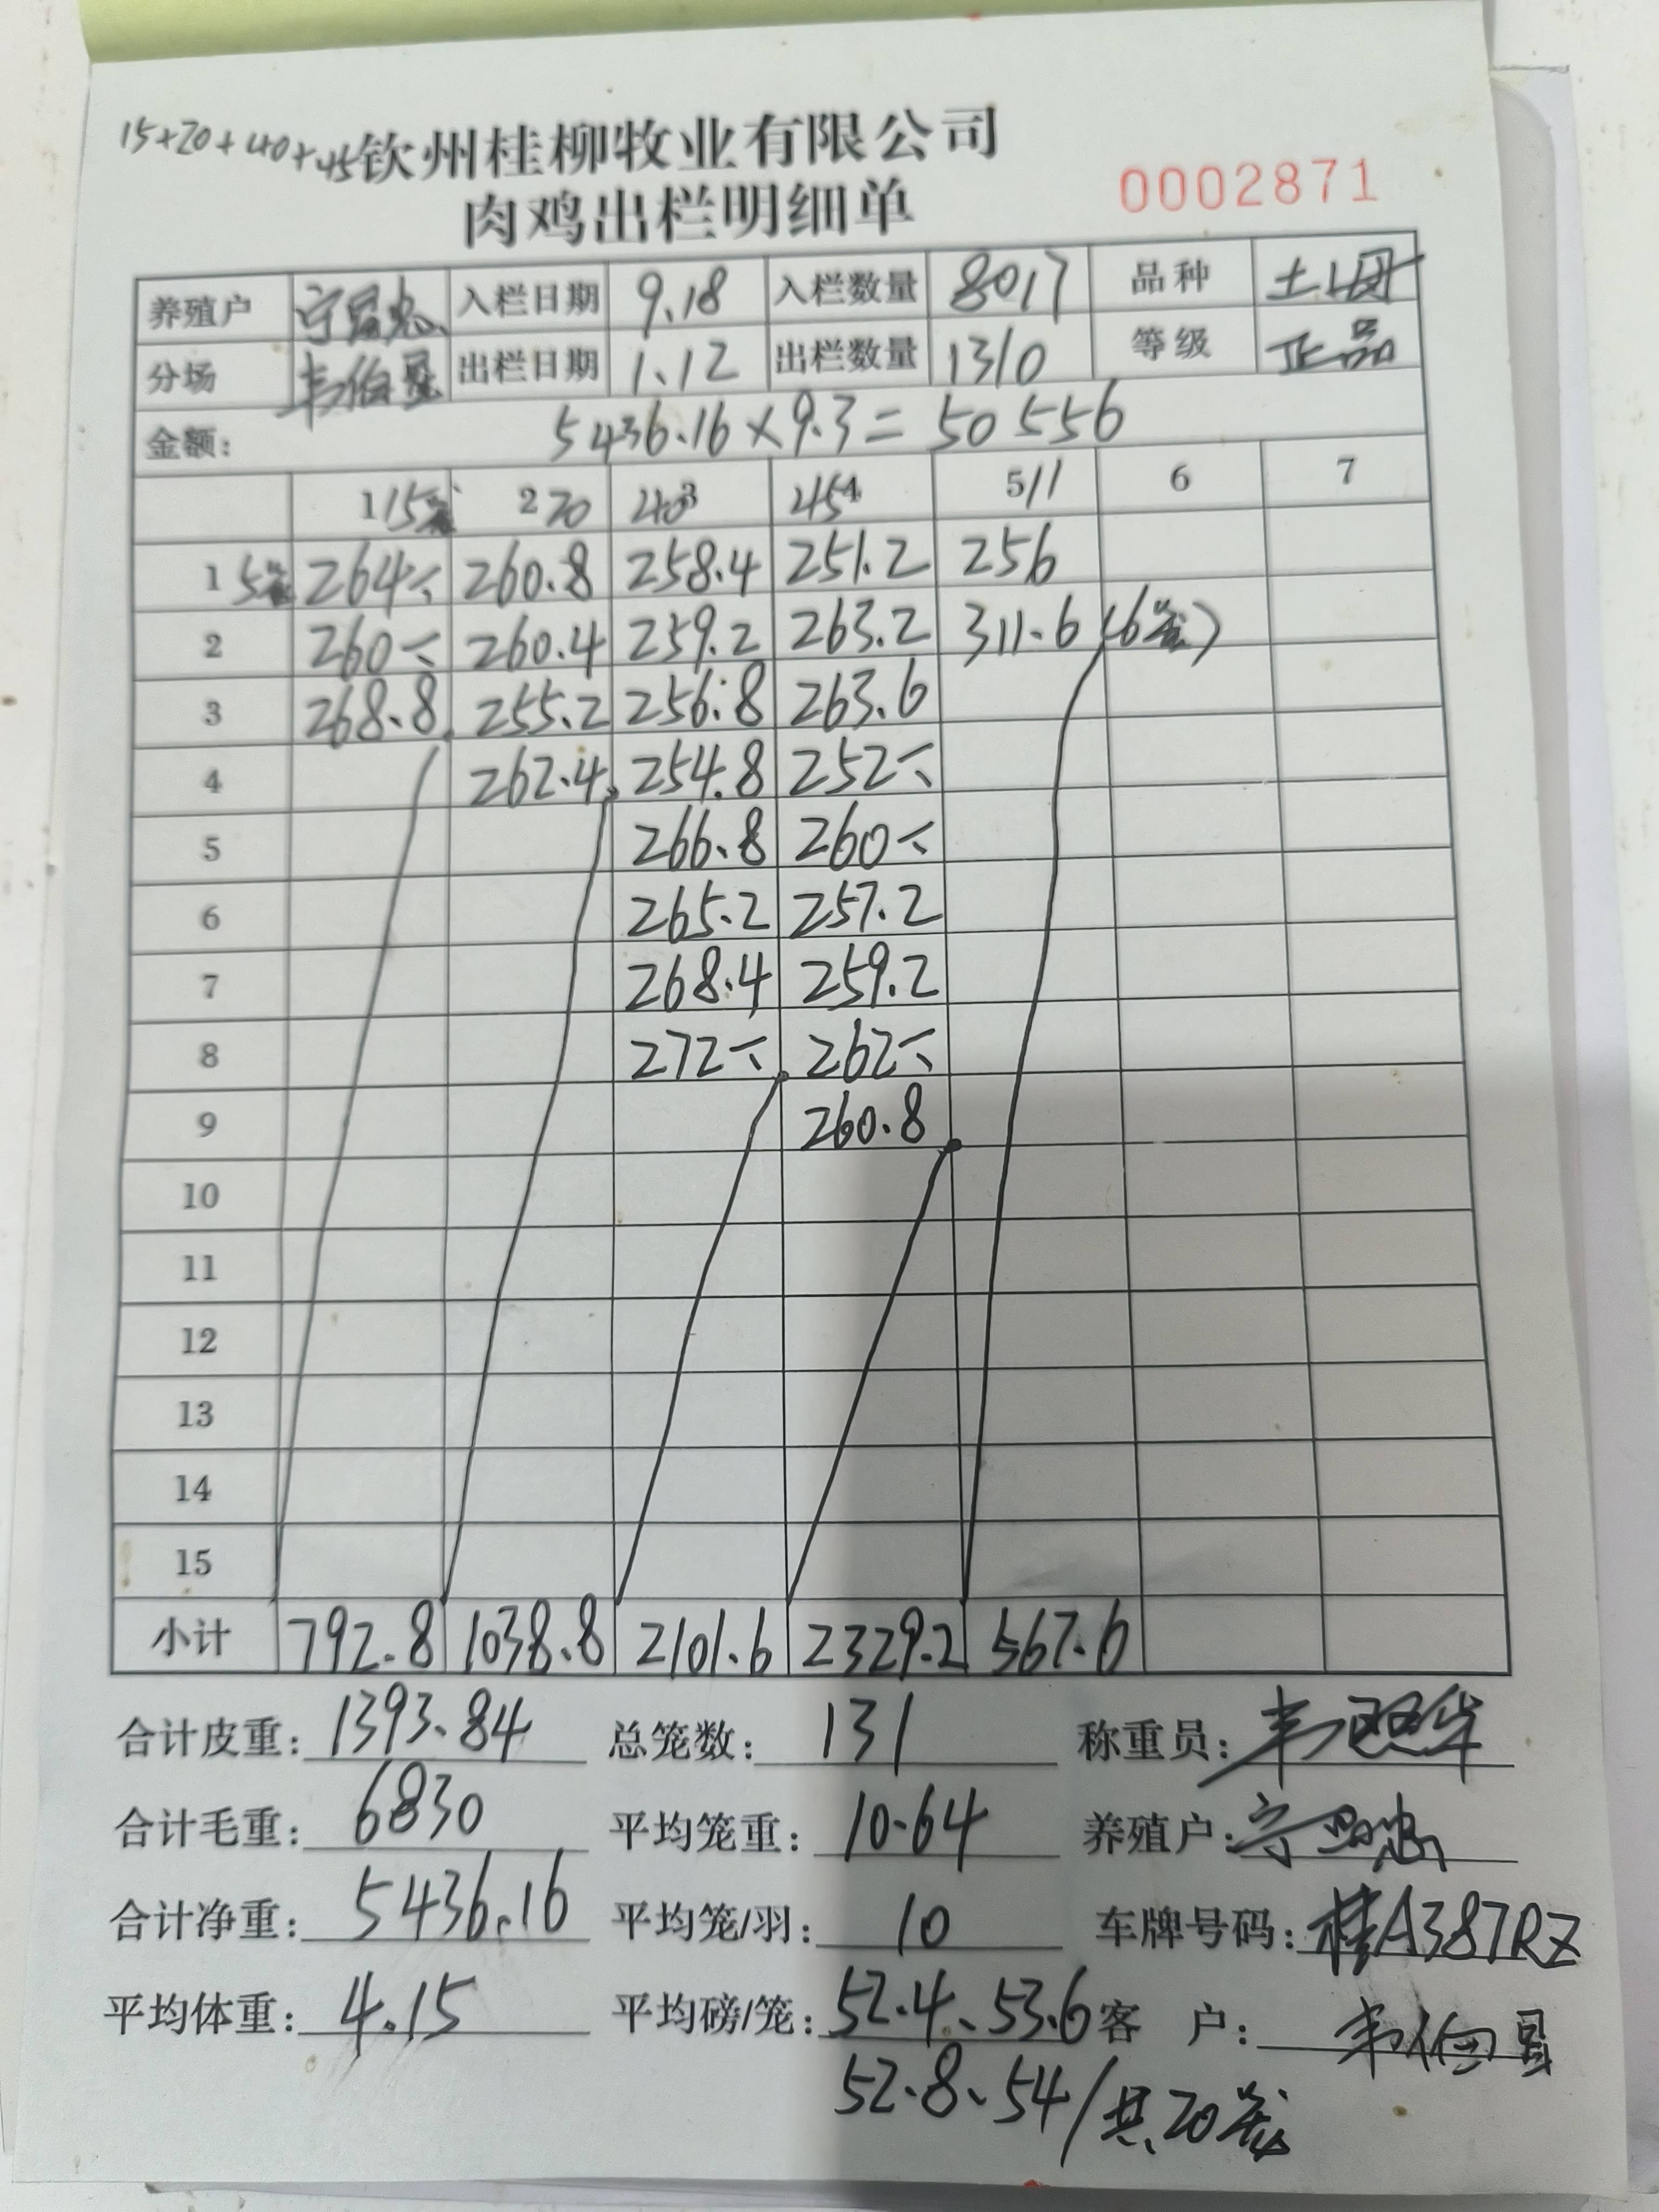 15+20+40+45
钦州桂柳牧业有限公司
肉鸡出栏明细单 0002871
养殖户 入栏日期 9.18 入栏数量 8017 品种
分场 出栏日期 1.12 出栏数量 1310 等级 正品
金额: 5436.16×9.3=50556
1 15笼 2 20 3 40 4 45 5 11 6 7
1 5笼 264 260.8 258.4 251.2 256
2 260 260.4 259.2 263.2 311.6 (6笼)
3 268.8 255.2 256.8 263.6
4 262.4 254.8 252
5 266.8 260
6 265.2 257.2
7 268.4 259.2
8 272 262
9 260.8
10
11
12
13
14
15
小计 792.8 1038.8 2101.6 2329.2 567.6
合计皮重: 1393.84 总笼数: 131 称重员:
合计毛重: 6830 平均笼重: 10.64 养殖户:
合计净重: 5436.16 平均笼/羽: 10 车牌号码: 桂A387RZ
平均体重: 4.15 平均磅/笼: 52.4、53.6 客 户:
52.8、54/共20笼